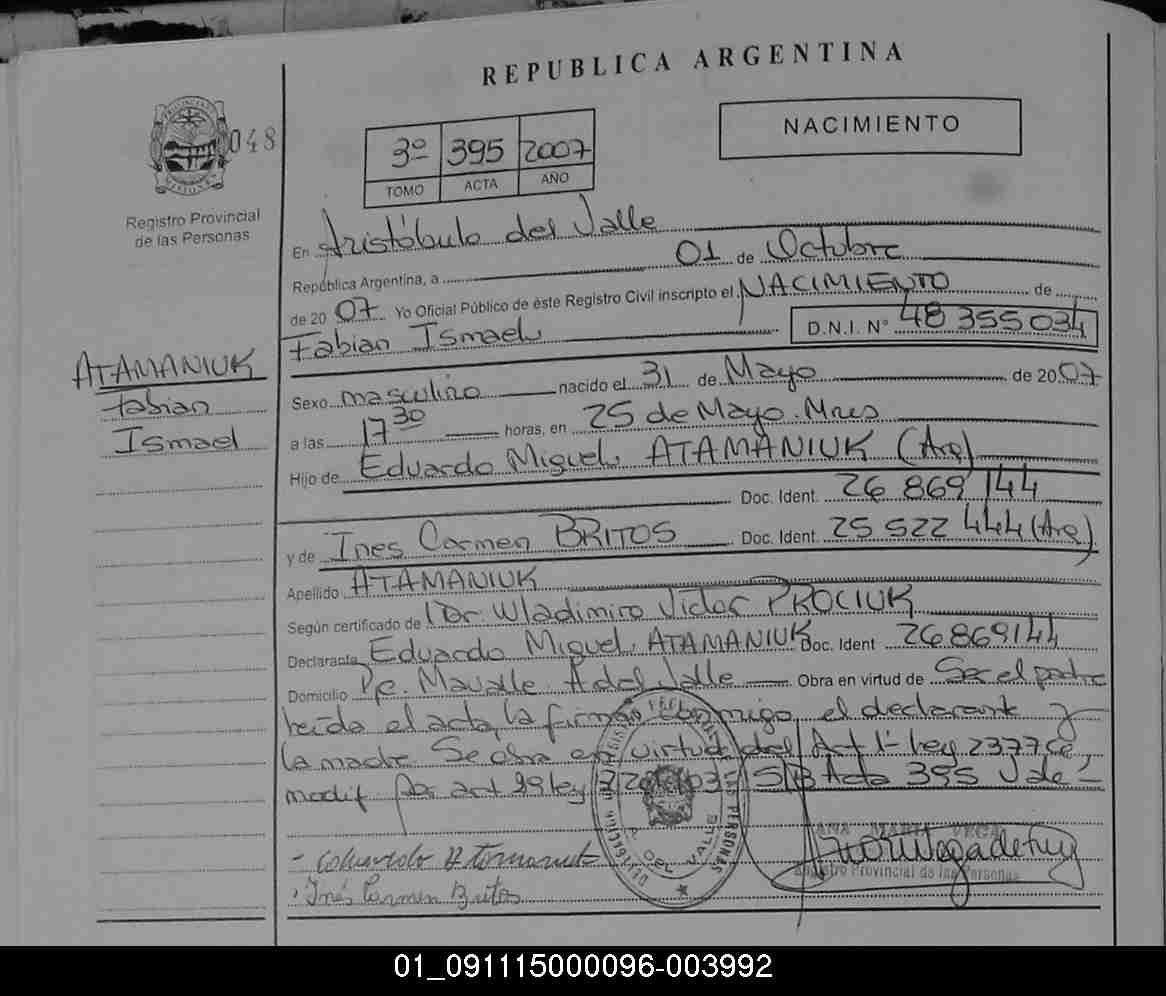 REPUBLICA ARGENTINA
NACIMIENTO
048
3º 395 2007
TOMO ACTA AÑO
Registro Provincial
de las Personas
En Aristóbulo del Valle
República Argentina, a 01 de Octubre
de 2007 Yo Oficial Público de éste Registro Civil inscripto el NACIMIENTO de
Fabian Ismael D.N.I. Nº 48 355 034
ATAMANIUK
Fabian
Ismael
Sexo masculino nacido el 31 de Mayo de 2007
a las 17 30 horas, en 25 de Mayo. Mnes
Hijo de Eduardo Miguel ATAMANIUK (Arg)
Doc. Ident. 26 869 144
y de Ines Carmen BRITOS Doc. Ident. 25 522 444 (Arg)
Apellido ATAMANIUK
Según certificado de Dr. Wladimiro Victor PROCIUK
Declarante Eduardo Miguel ATAMANIUK Doc. Ident 26869144
Domicilio Pje. Mavalle A del Valle Obra en virtud de Ser el padre
leída el acta, la firman conmigo, el declarante y
la madre Se obra en virtud del Art 1º ley 23776
modif por art 99 ley S/B Acta 395 Vale
ANA MARIA VEGA
Registro Provincial de las Personas
DEL VALLE
- Eduardo Atamaniuk
Inés Carmen Britos
01_091115000096-003992